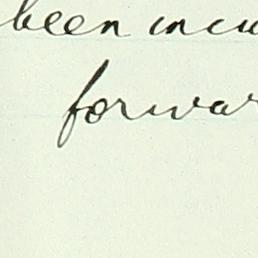 been incu
forwar